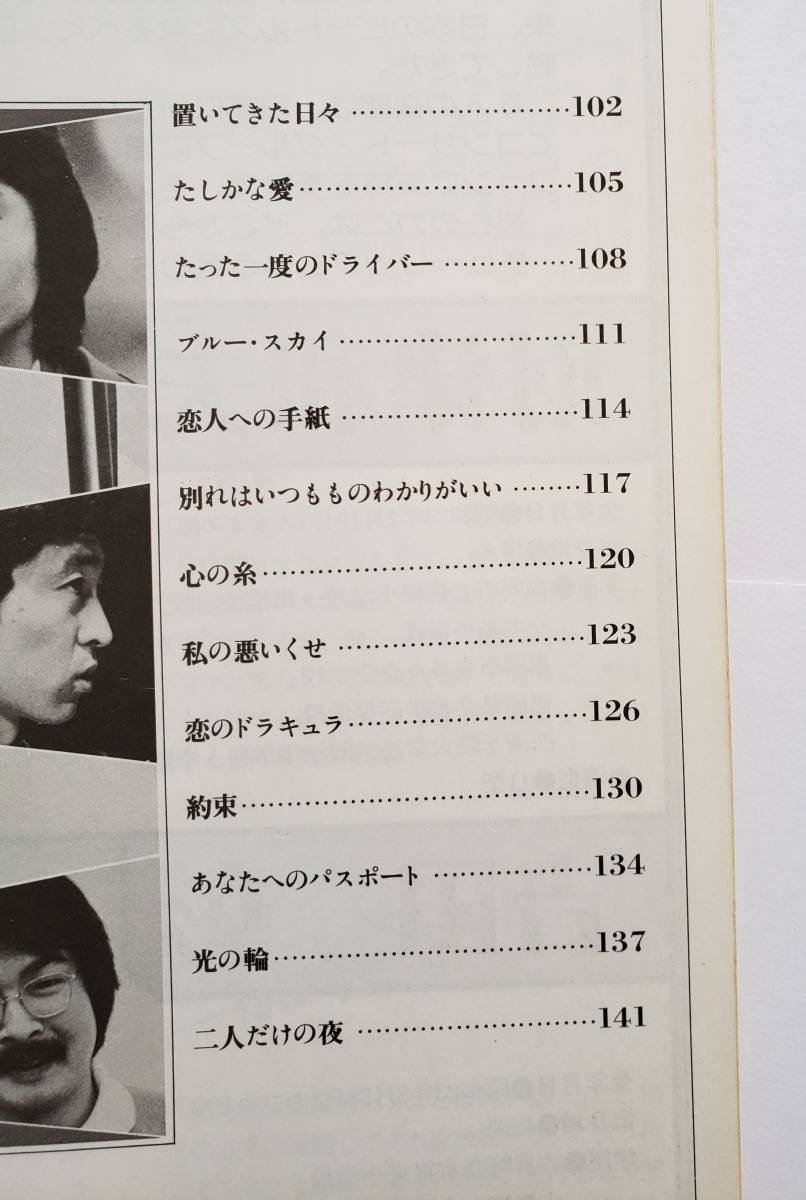 置いてきた日々 ……………………… 102
たしかな愛 ……………………… 105
たった一度のドライバー …………… 108
ブルー・スカイ ……………………… 111
恋人への手紙 ……………………… 114
別れはいつもものわかりがいい ……… 117
心の糸 ……………………………… 120
私の悪いくせ ……………………… 123
恋のドラキュラ ……………………… 126
約束 ……………………………… 130
あなたへのパスポート ……………… 134
光の輪 ……………………………… 137
二人だけの夜 ……………………… 141